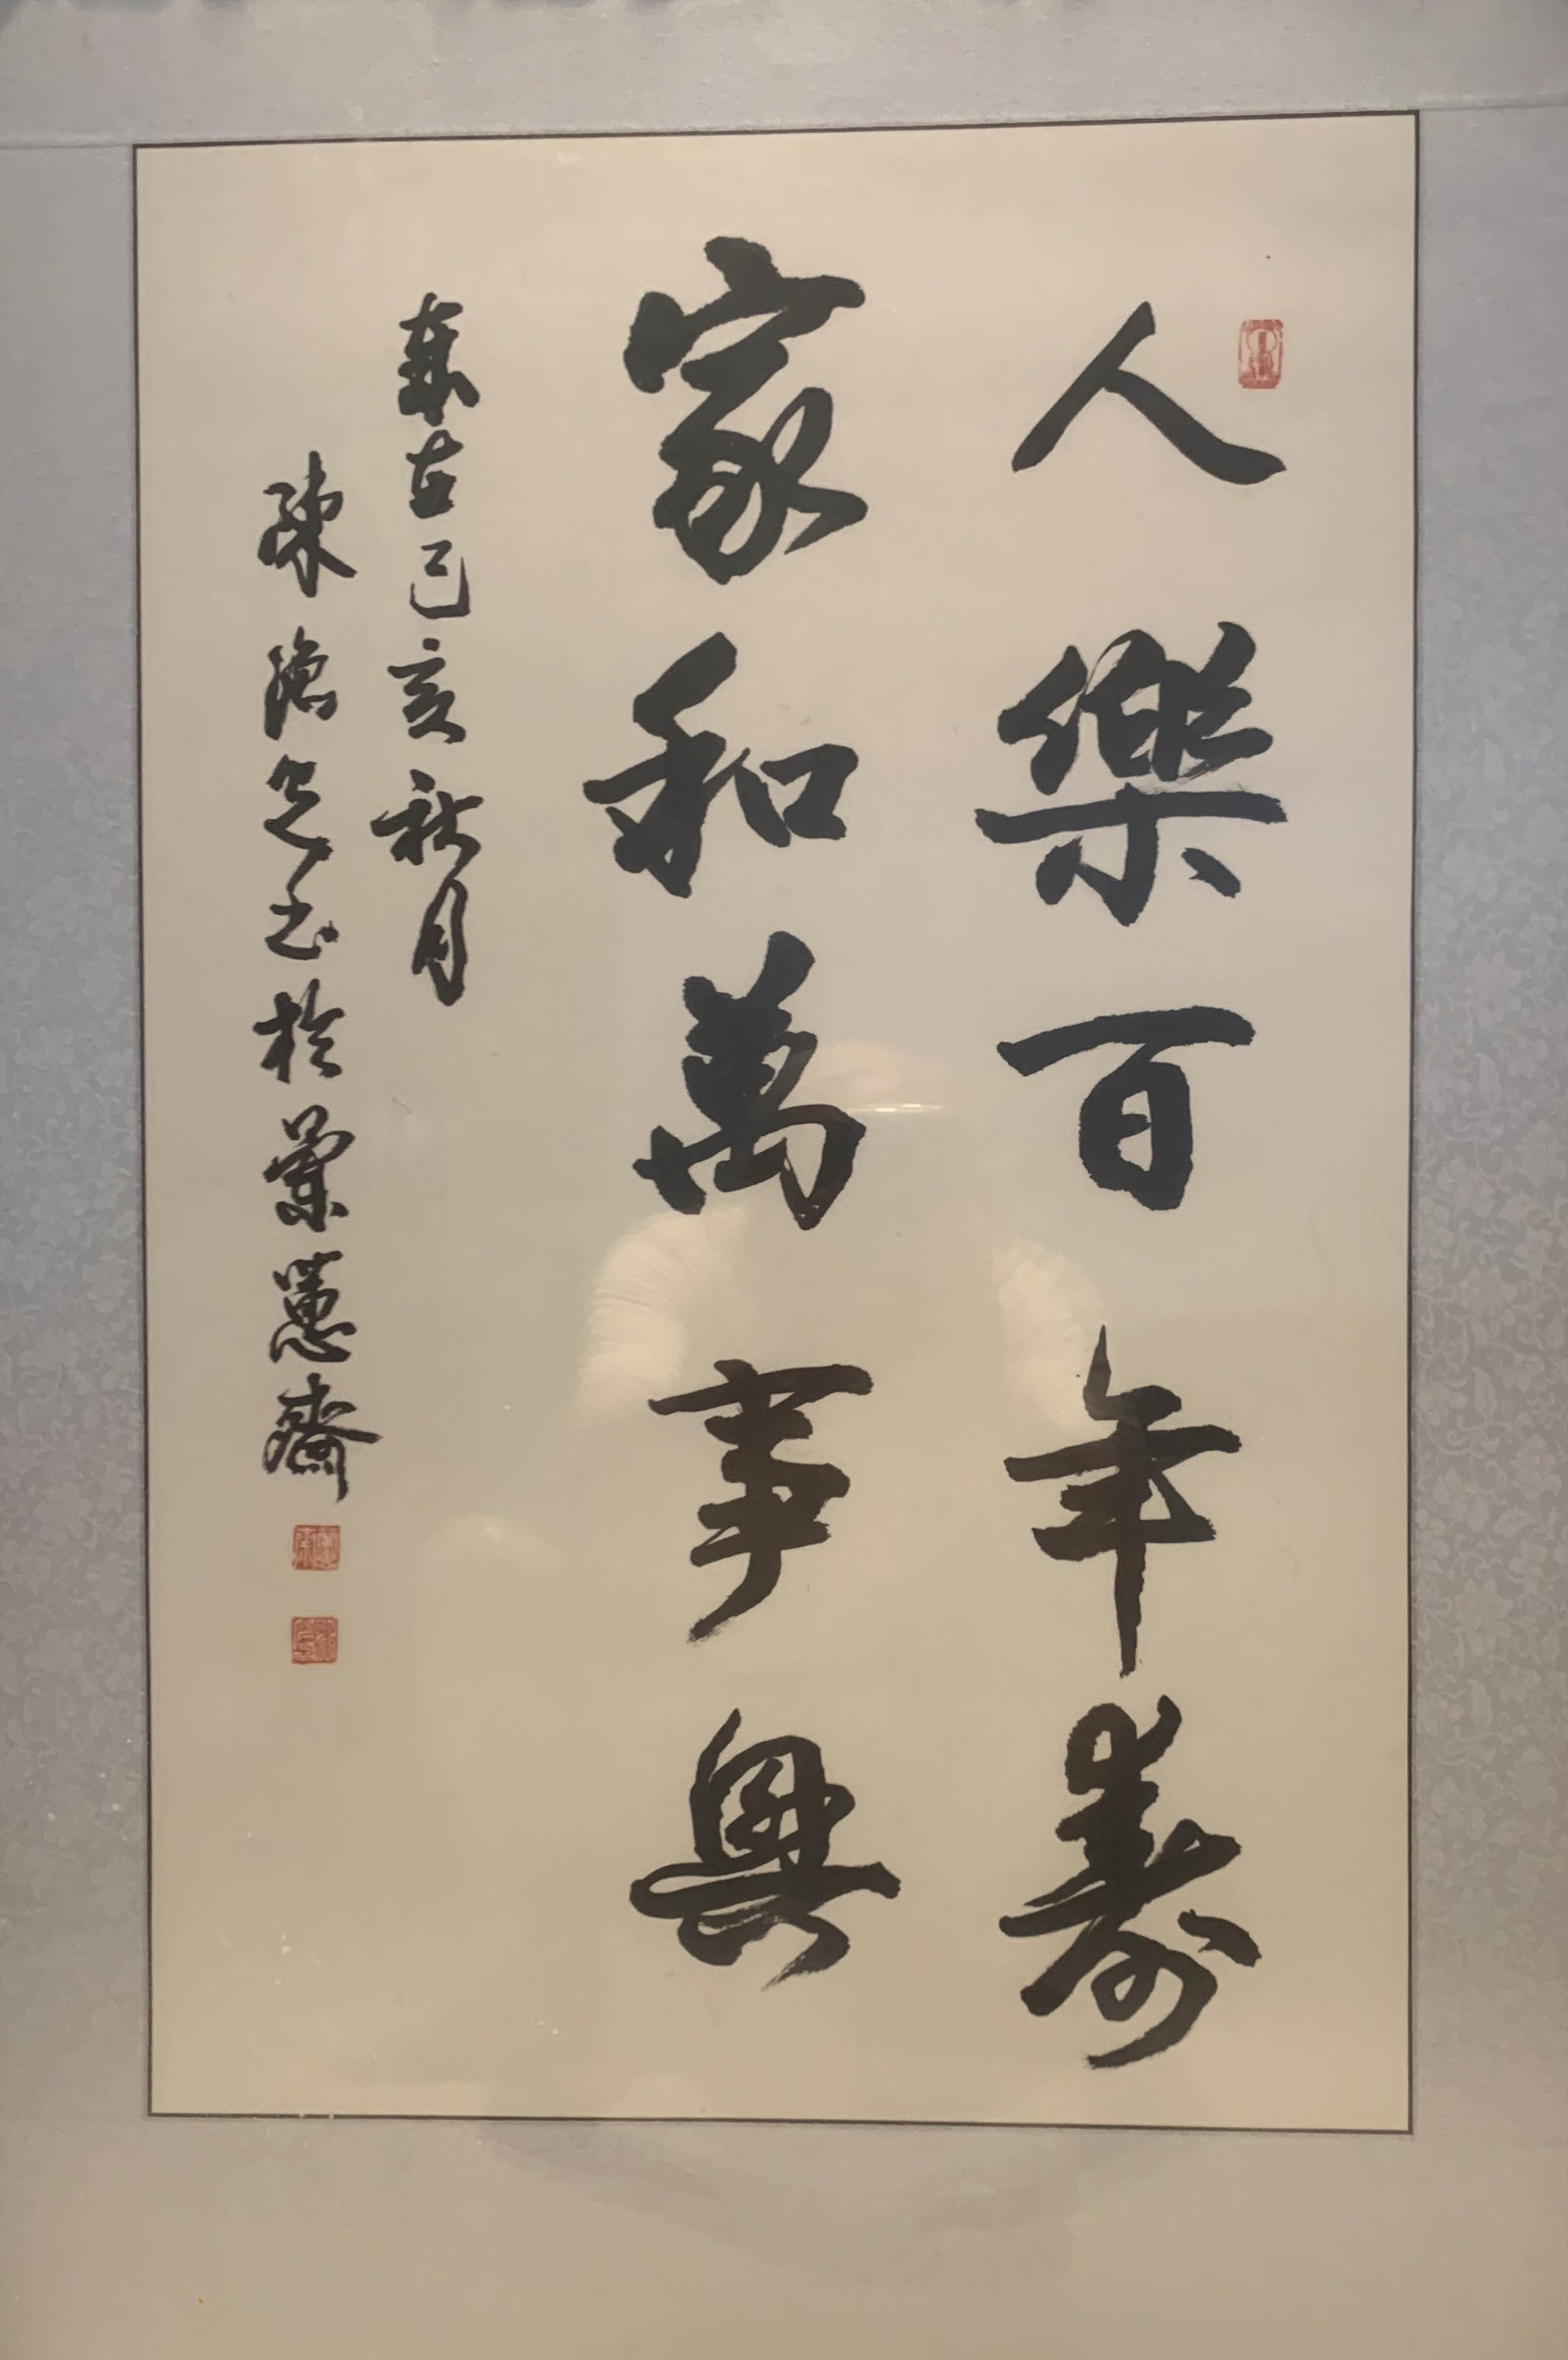 人樂百年壽
家和萬事興
歲在己亥秋月
陳 書於蘭蕙齋